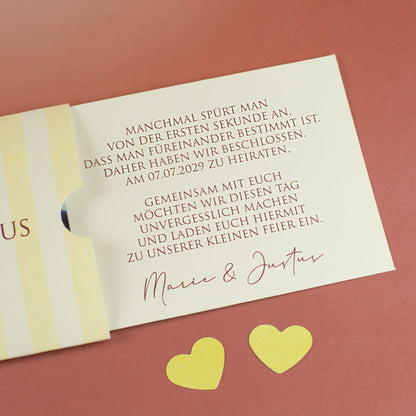 MANCHMAL SPÜRT MAN
VON DER ERSTEN SEKUNDE AN,
DASS MAN FÜREINANDER BESTIMMT IST.
DAHER HABEN WIR BESCHLOSSEN,
AM 07.07.2029 ZU HEIRATEN.
GEMEINSAM MIT EUCH
MÖCHTEN WIR DIESEN TAG
UNVERGESSLICH MACHEN
UND LADEN EUCH HIERMIT
ZU UNSERER KLEINEN FEIER EIN.
Marie & Justus
US